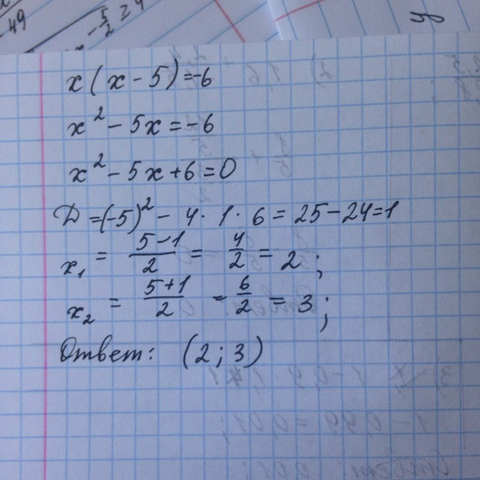 x(x-5)=-6
x²-5x=-6
x²-5x+6=0
D=(-5)²-4·1·6=25-24=1
x₁ = (5-1)/2 = 4/2 = 2;
x₂ = (5+1)/2 - 6/2 = 3;
Ответ: (2; 3)